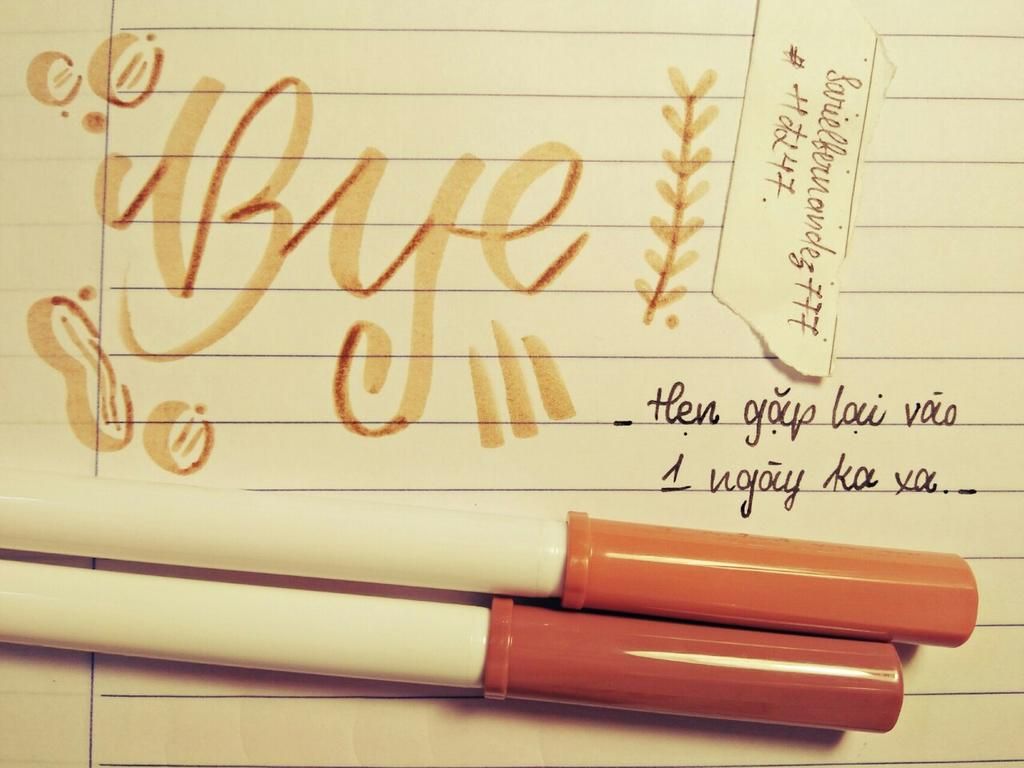 Bye
Sarielhernandez777
# Htz47.
_ Hẹn gặp lại vào
1 ngày ka xa._